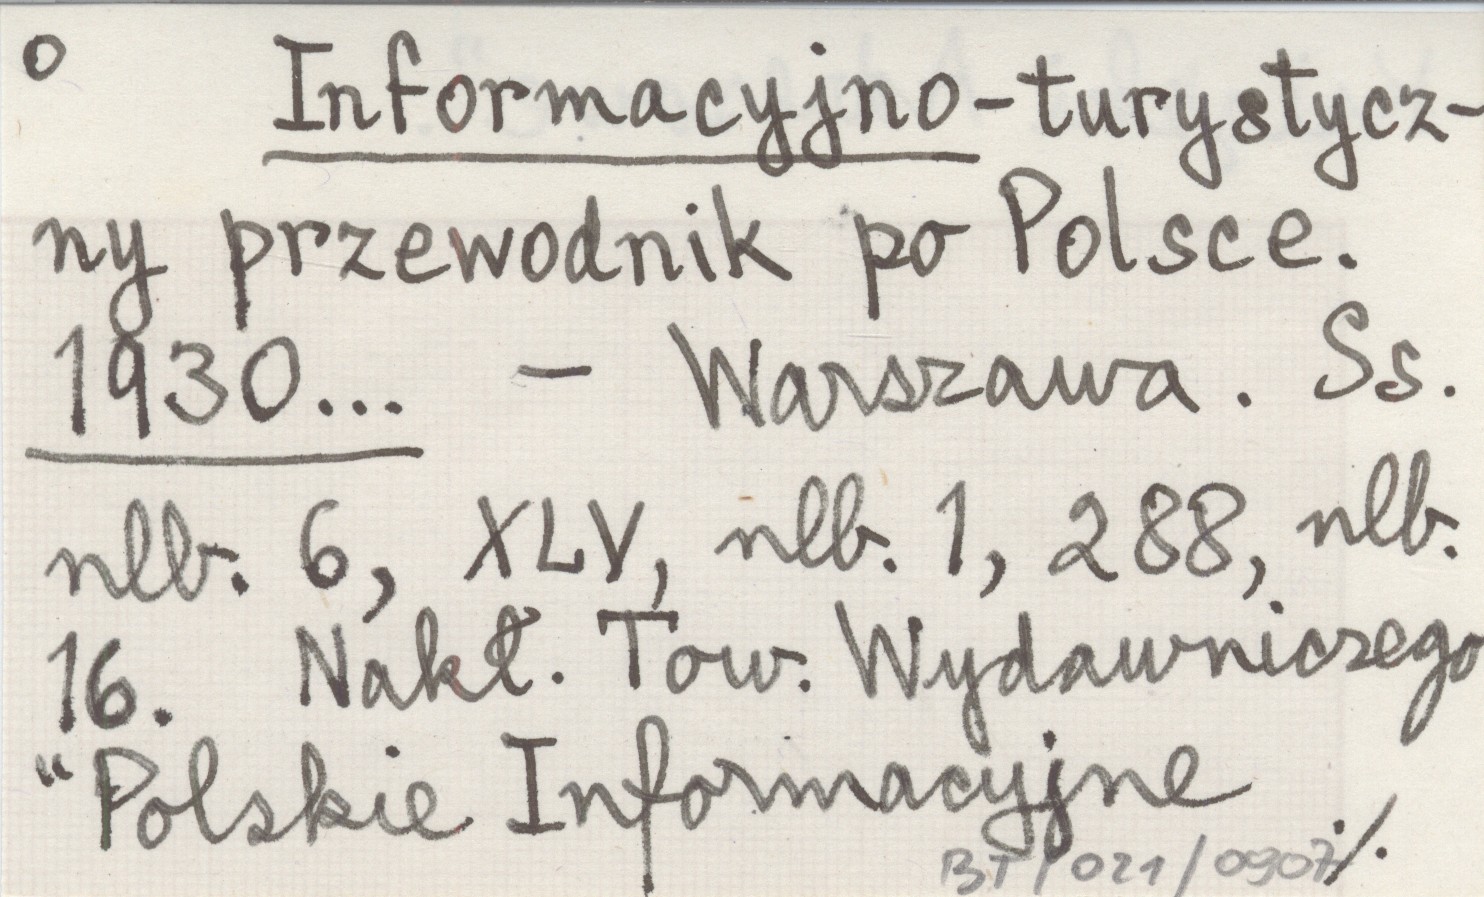 o Informacyjno-turystycz-
ny przewodnik po Polsce.
1930... - Warszawa. Ss.
nlb. 6, XLV, nlb. 1, 288, nlb.
16. Nakł. Tow. Wydawniczego
"Polskie Informacyjne
BT/021/0907 ./.